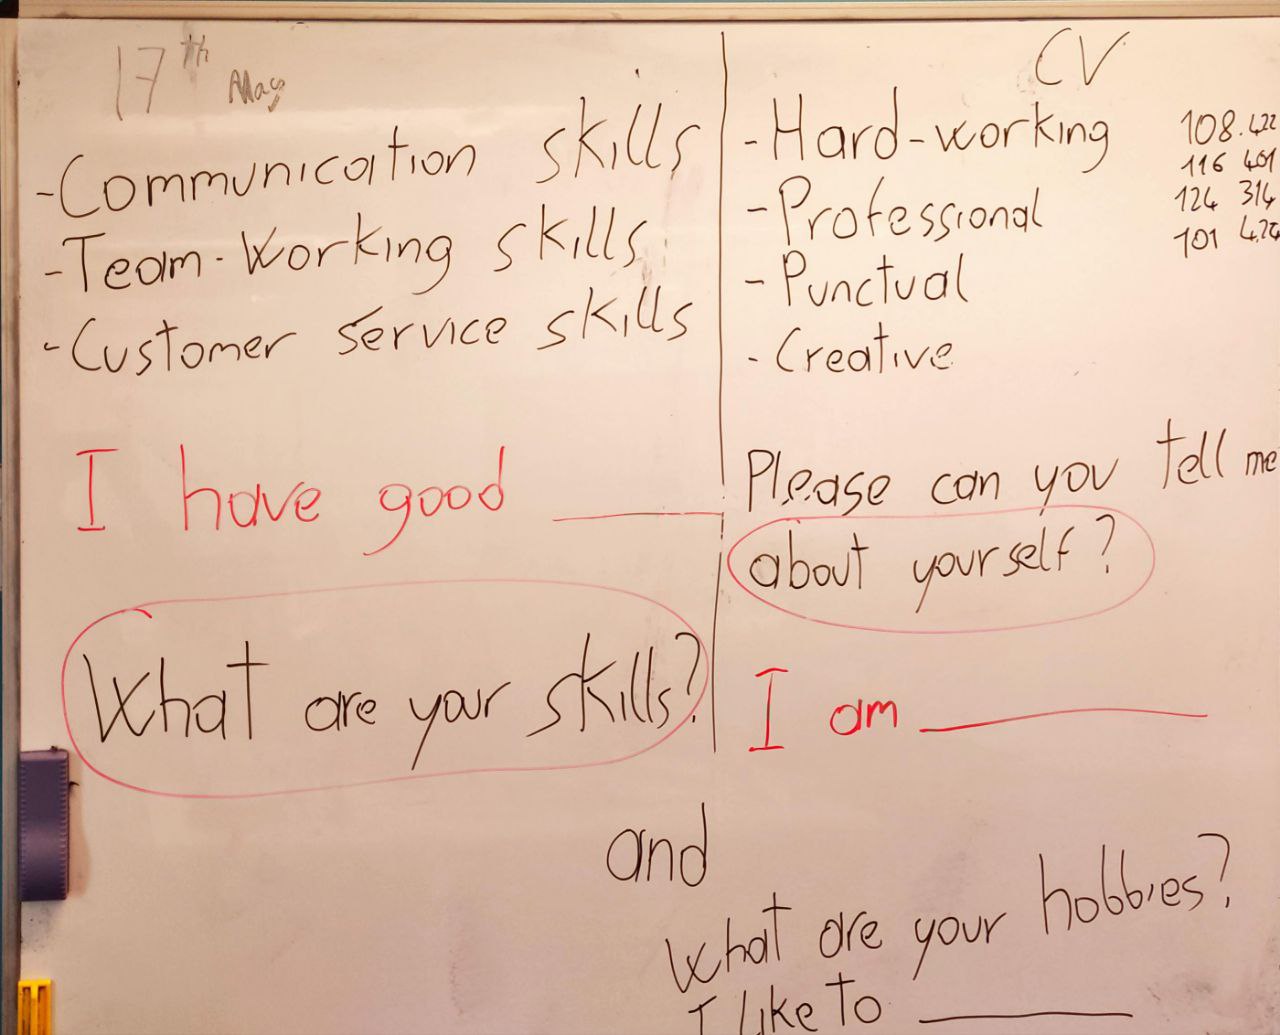 17th May
- Communication skills
- Team-Working skills
- Customer service skills
I have good ____
What are your skills?
CV
- Hard-working
- Professional
- Punctual
- Creative
108.422
116 401
124 314
101
Please can you tell me
about yourself?
I am ____
and
What are your hobbies?
I like to ____